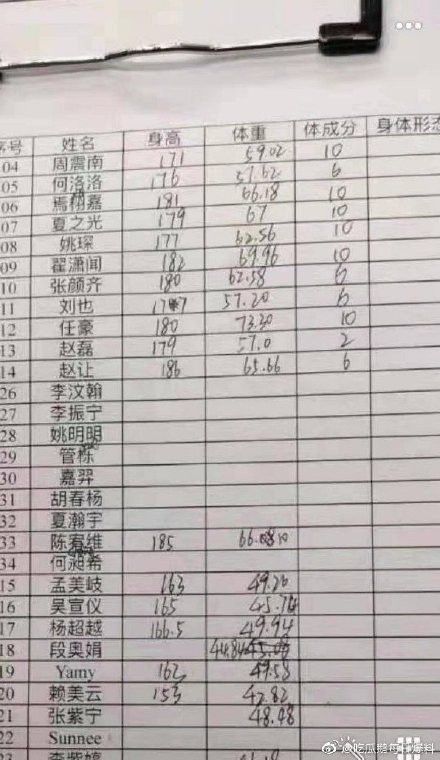 序号 姓名 身高 体重 体成分 身体形态
04 周震南 171 59.02 10
05 何洛洛 176 57.62 6
06 焉栩嘉 181 66.18 10
07 夏之光 179 67 10
08 姚琛 177 62.56 10
09 翟潇闻 182 69.96 10
10 张颜齐 180 62.58 6
11 刘也 57.20 6
12 任豪 180 73.30 10
13 赵磊 179 57.0 2
14 赵让 186 65.66 6
26 李汶翰
27 李振宁
28 姚明明
29 管栎
30 嘉羿
31 胡春杨
32 夏瀚宇
33 陈宥维 185
34 何昶希
15 孟美岐 163 49.20
16 吴宣仪 165 45.74
17 杨超越 166.5 49.94
18 段奥娟 44.84
19 Yamy 162 49.58
20 赖美云 153 42.82
21 张紫宁 48.48
22 Sunnee
23 李紫婷
@吃瓜群每日爆料